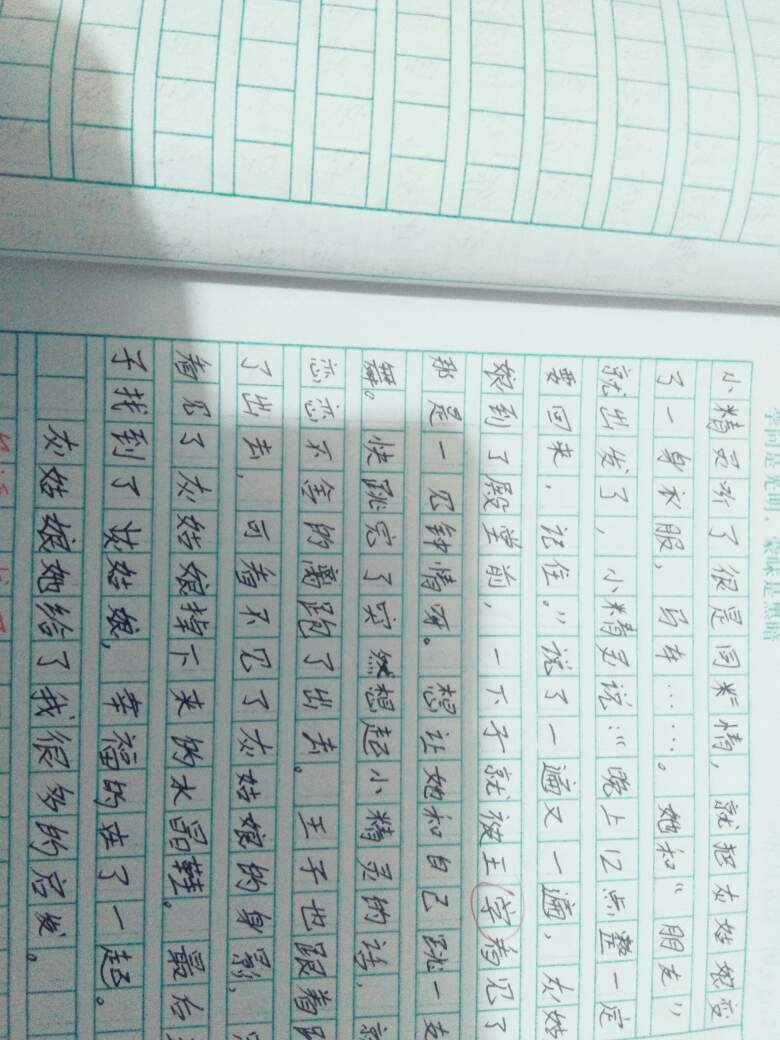 学问是光明，蒙昧是黑暗
小精灵听了很是同情，就把灰姑娘变
了一身衣服，马车……。她和“朋友”
就出发了，小精灵说：“晚上12点整一定
要回来，记住。”说了一遍又一遍，灰姑
娘到了殿堂前，一下子就被王字看见了
那是一见钟情呀。想让她和自己跳一支
舞。快跳完了突然想起小精灵的话，就
恋恋不舍的离跑了出去。王子也跟着
了出去，可看不见了灰姑娘的身影，
看见了灰姑娘掉下来的水晶鞋。最后
子找到了灰姑娘，幸福的在了一起。
灰姑娘她给了我很多的启发。